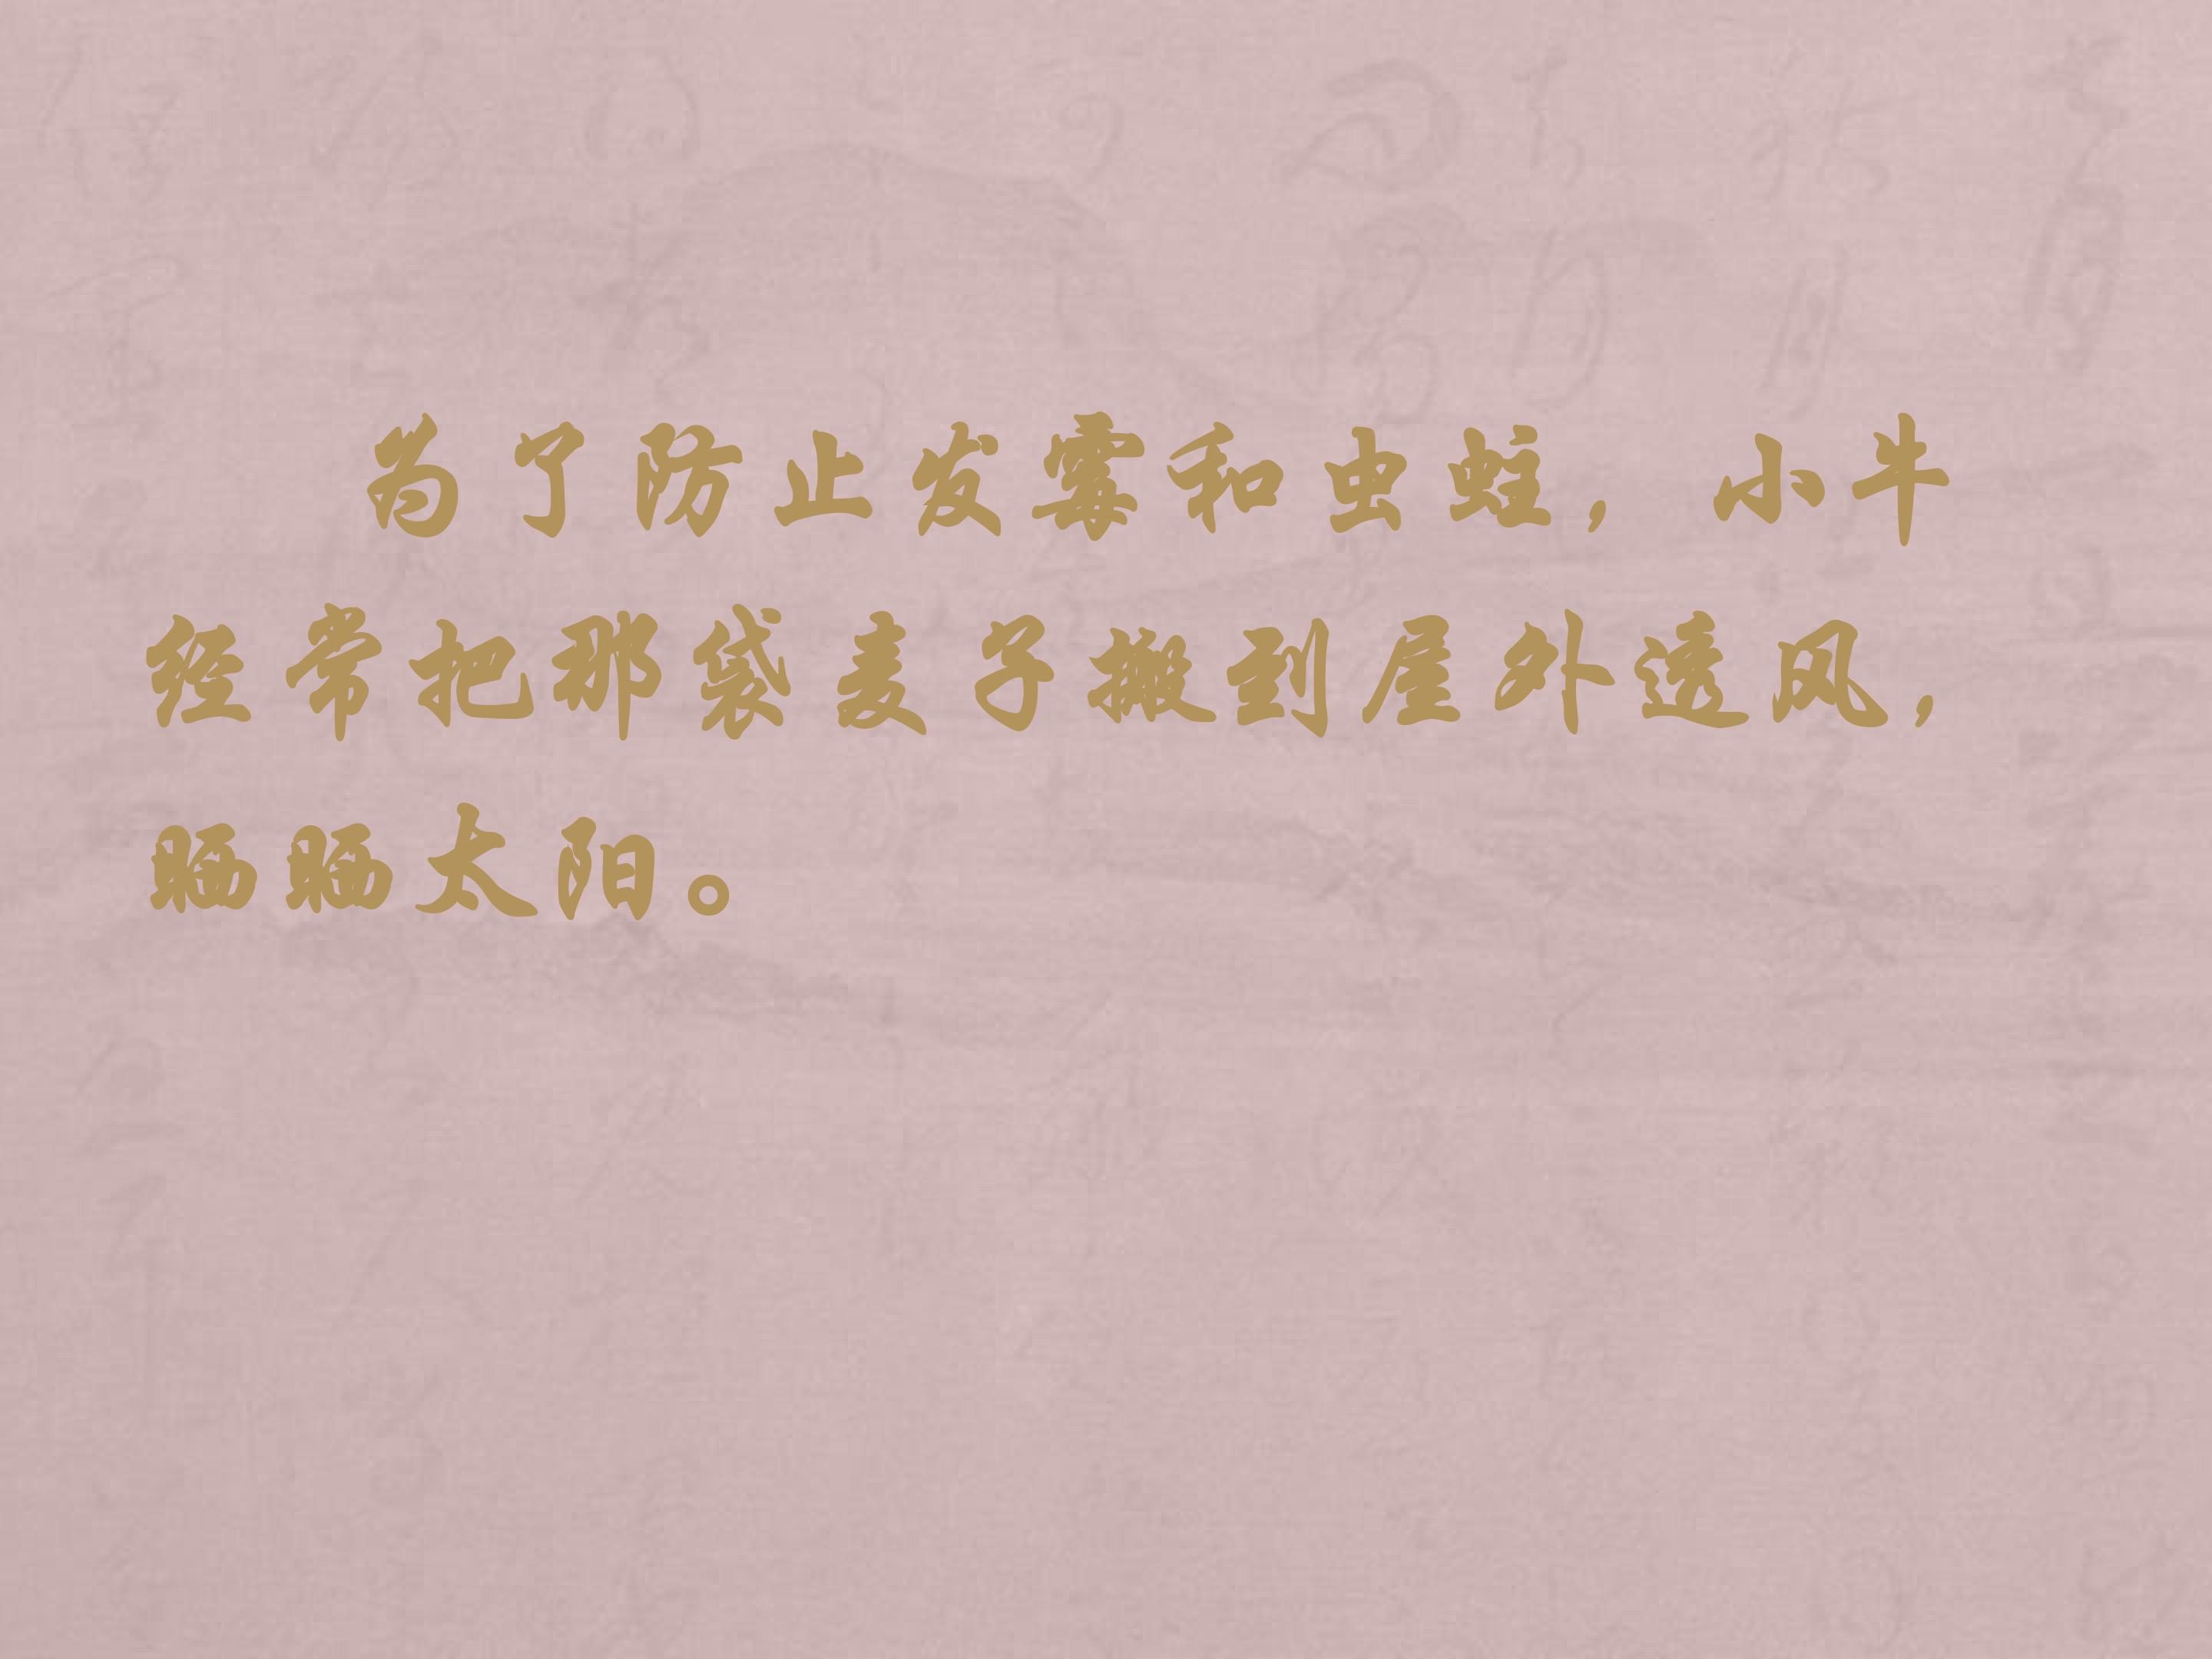 为了防止发霉和虫蛀，小牛
经常把那袋麦子搬到屋外透风，
晒晒太阳。